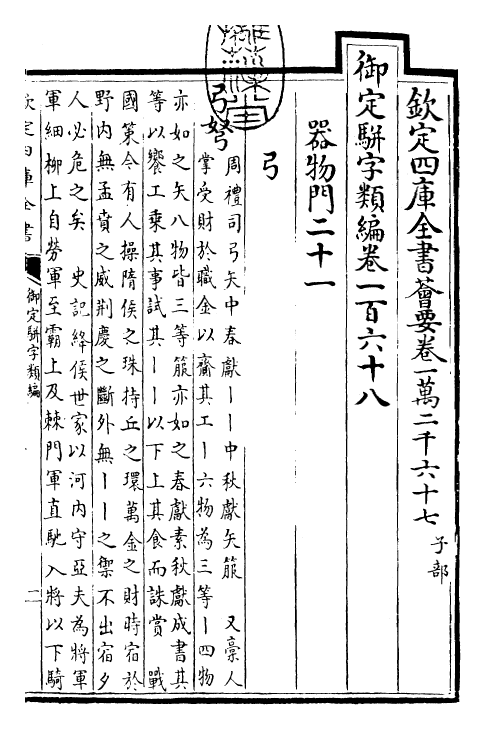 欽定四庫全書薈要卷一萬二千六十七 子部
御定駢字類編卷一百六十八
器物門二十一
弓
弓弩
周禮司弓矢中春獻丨丨中秋獻矢箙 又槀人
掌受財於職金以齎其工丨六物為三等丨四物
亦如之矢八物皆三等箙亦如之春獻素秋獻成書其
等以饗工乗其事試其丨丨以下上其食而誅賞 戰
國策今有人操隋侯之珠持丘之環萬金之財時宿於
野内無孟賁之威荆慶之斷外無丨丨之禦不出宿夕
人必危之矣 史記絳侯世家以河内守亞夫為將軍
軍細柳上自勞軍至霸上及棘門軍直馳入將以下騎
欽定四庫全書
御定駢字類編